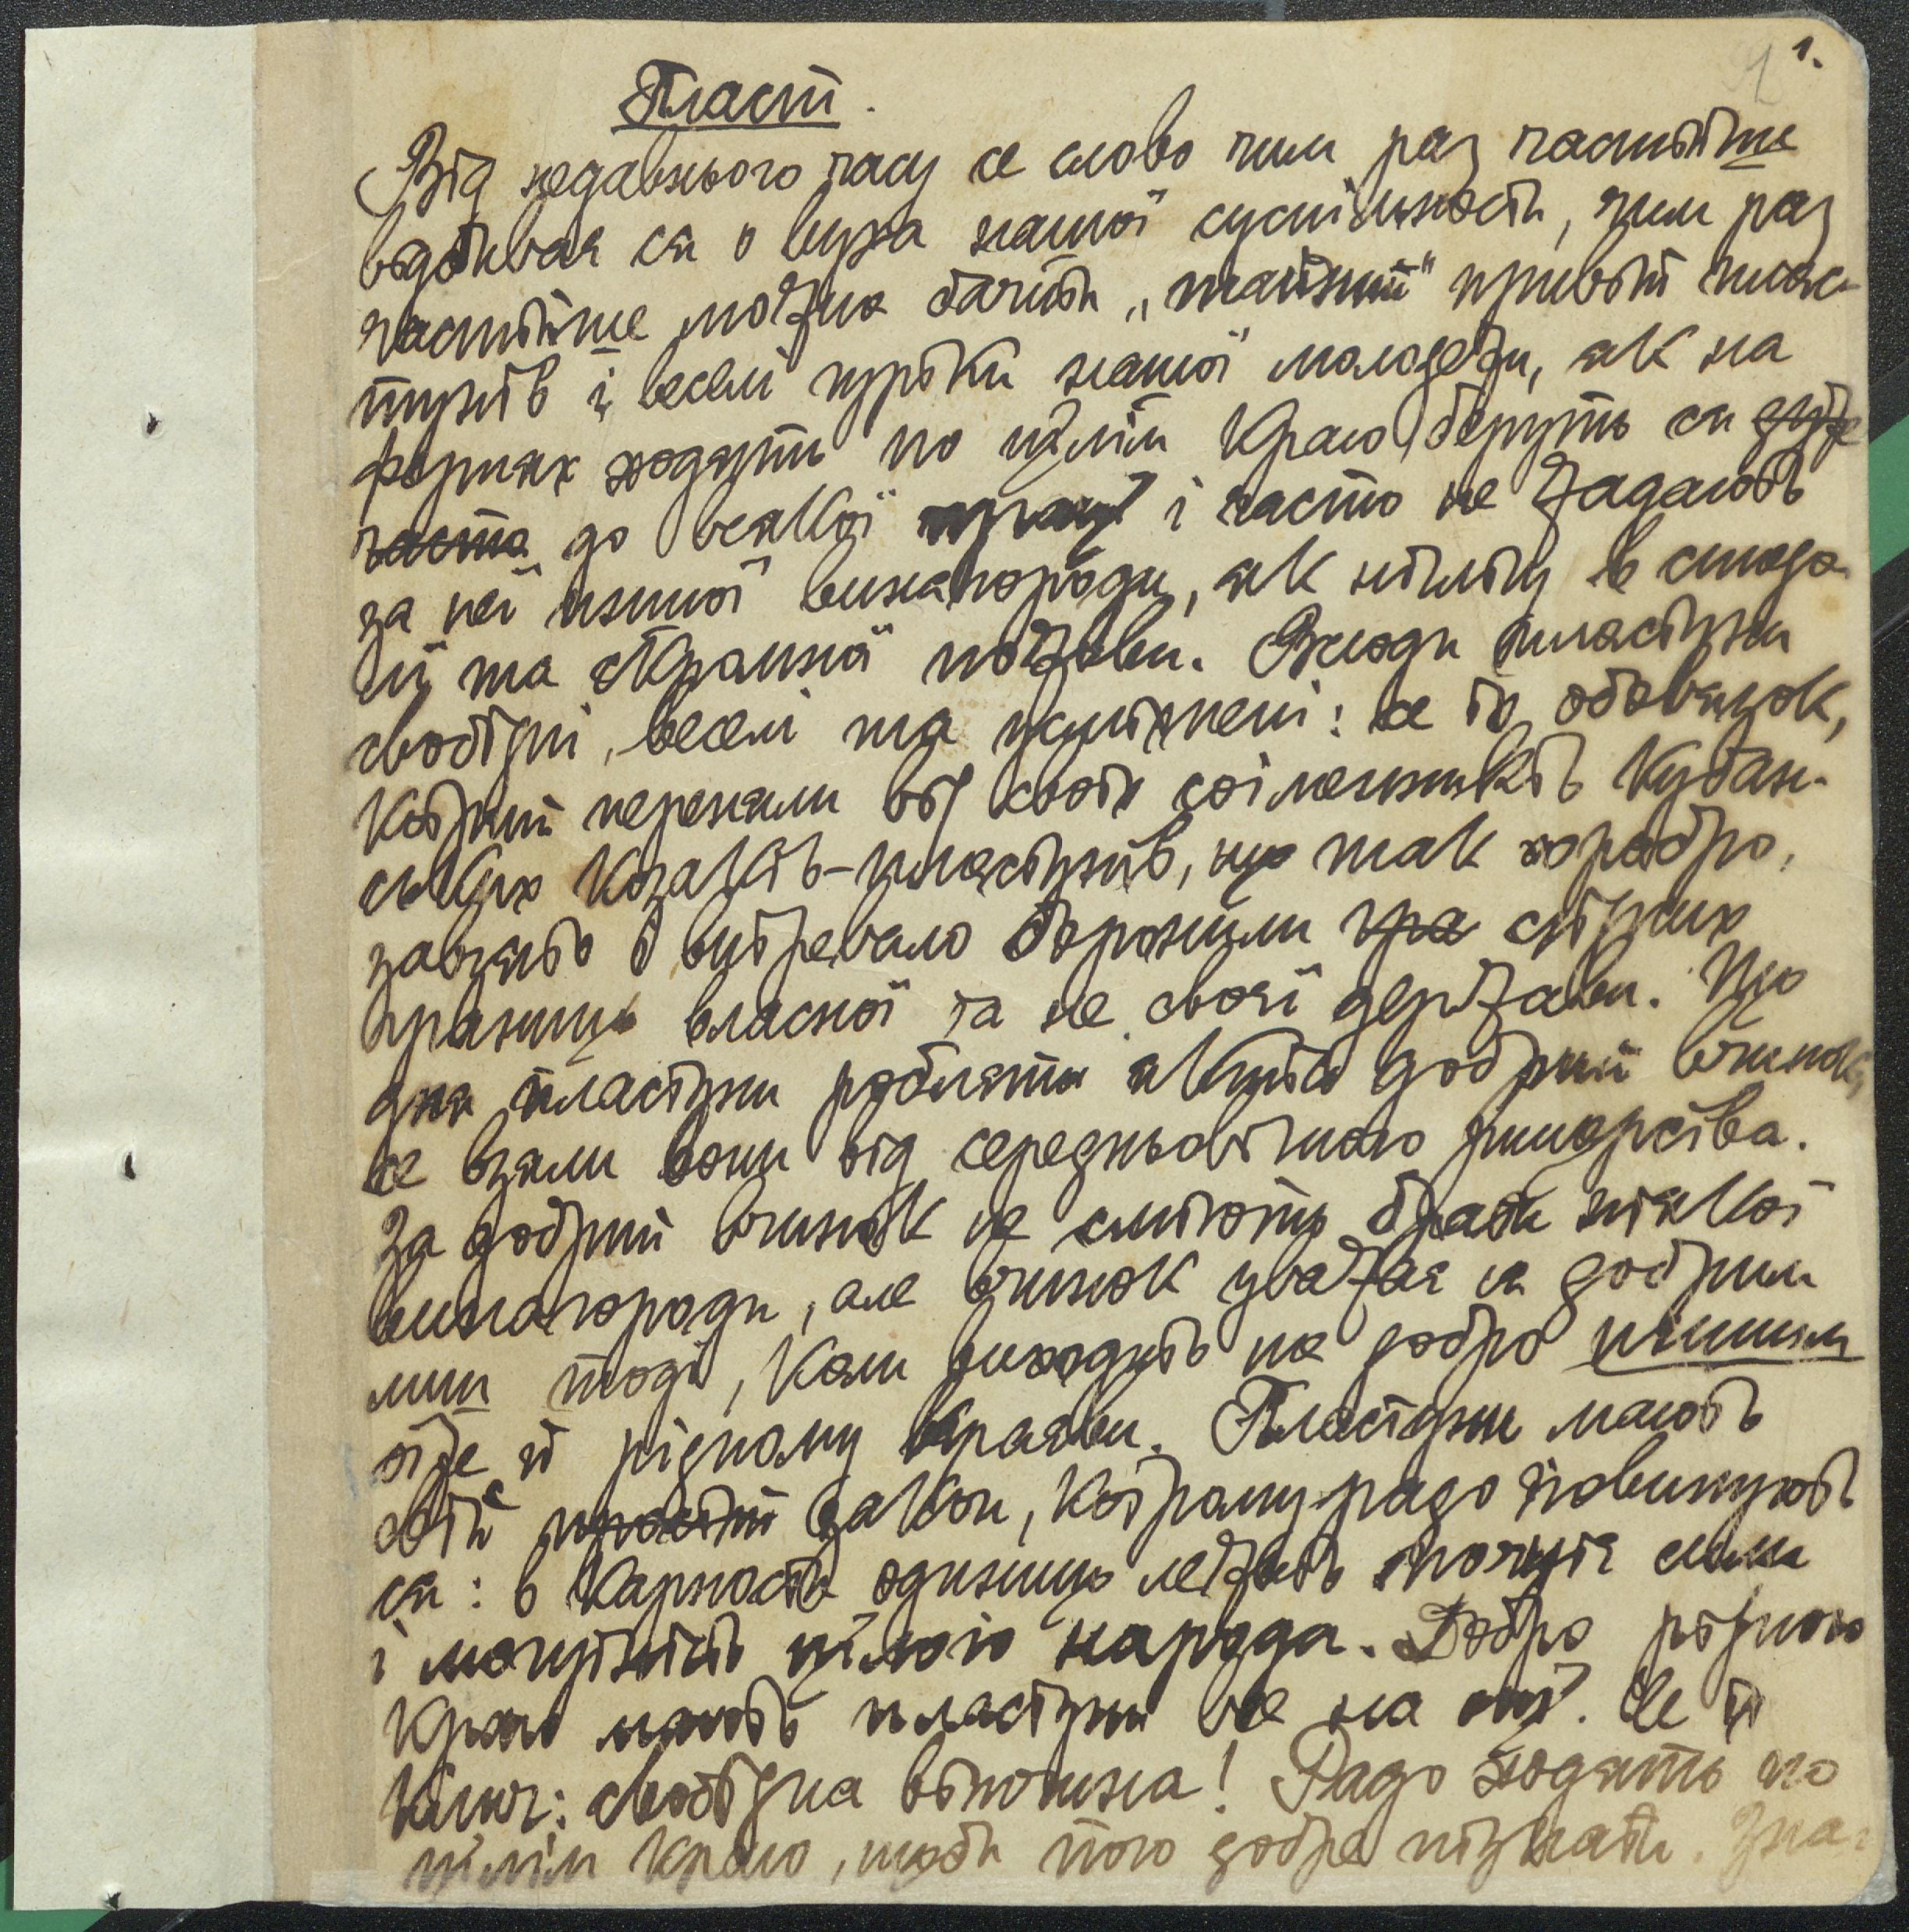 1.
Пласт.
Від недавнього часу се слово чим раз частійше
відбиває ся о вуха нашої суспільности, чим раз
частійше можна бачити „тайний" привіт плас-
тунів і веселі гуртки нашої молодежи, як на
ходять по цілім краю беруть ся дуже
часто до всякої праці і часто не жадають
за неї иншої винагороди, як нічлігу в стодо-
лі та скромної поживи. Всюди пластуни
свобідні, веселі та усміхнені: се їх обовязок,
котрий переняли від своїх соіменників Кубан-
ських козаків-пластунів, що так хоробро,
завзято і витревало боронили гра східних
границь власної та не своєї держави. Що
дня пластуни роблять якийсь добрий вчинок,
се взяли вони від середньовічного рицарства.
За добрий вчинок не сміють брати ніякої
винагороди, але вчинок уважає ся добрим
лиш тоді, коли виходить на добро иншим
або й рідному краєви. Пластуни мають
свій закон, котрому радо повинують
ся: в карности одиниць лежить творча сила
і могутність цілого народа. Добро рідного
краю мають пластуни все на оці. Се їх
клич: свобідна вітчина! Радо ходять по
цілім краю, щоби його добре пізнати. Зна-